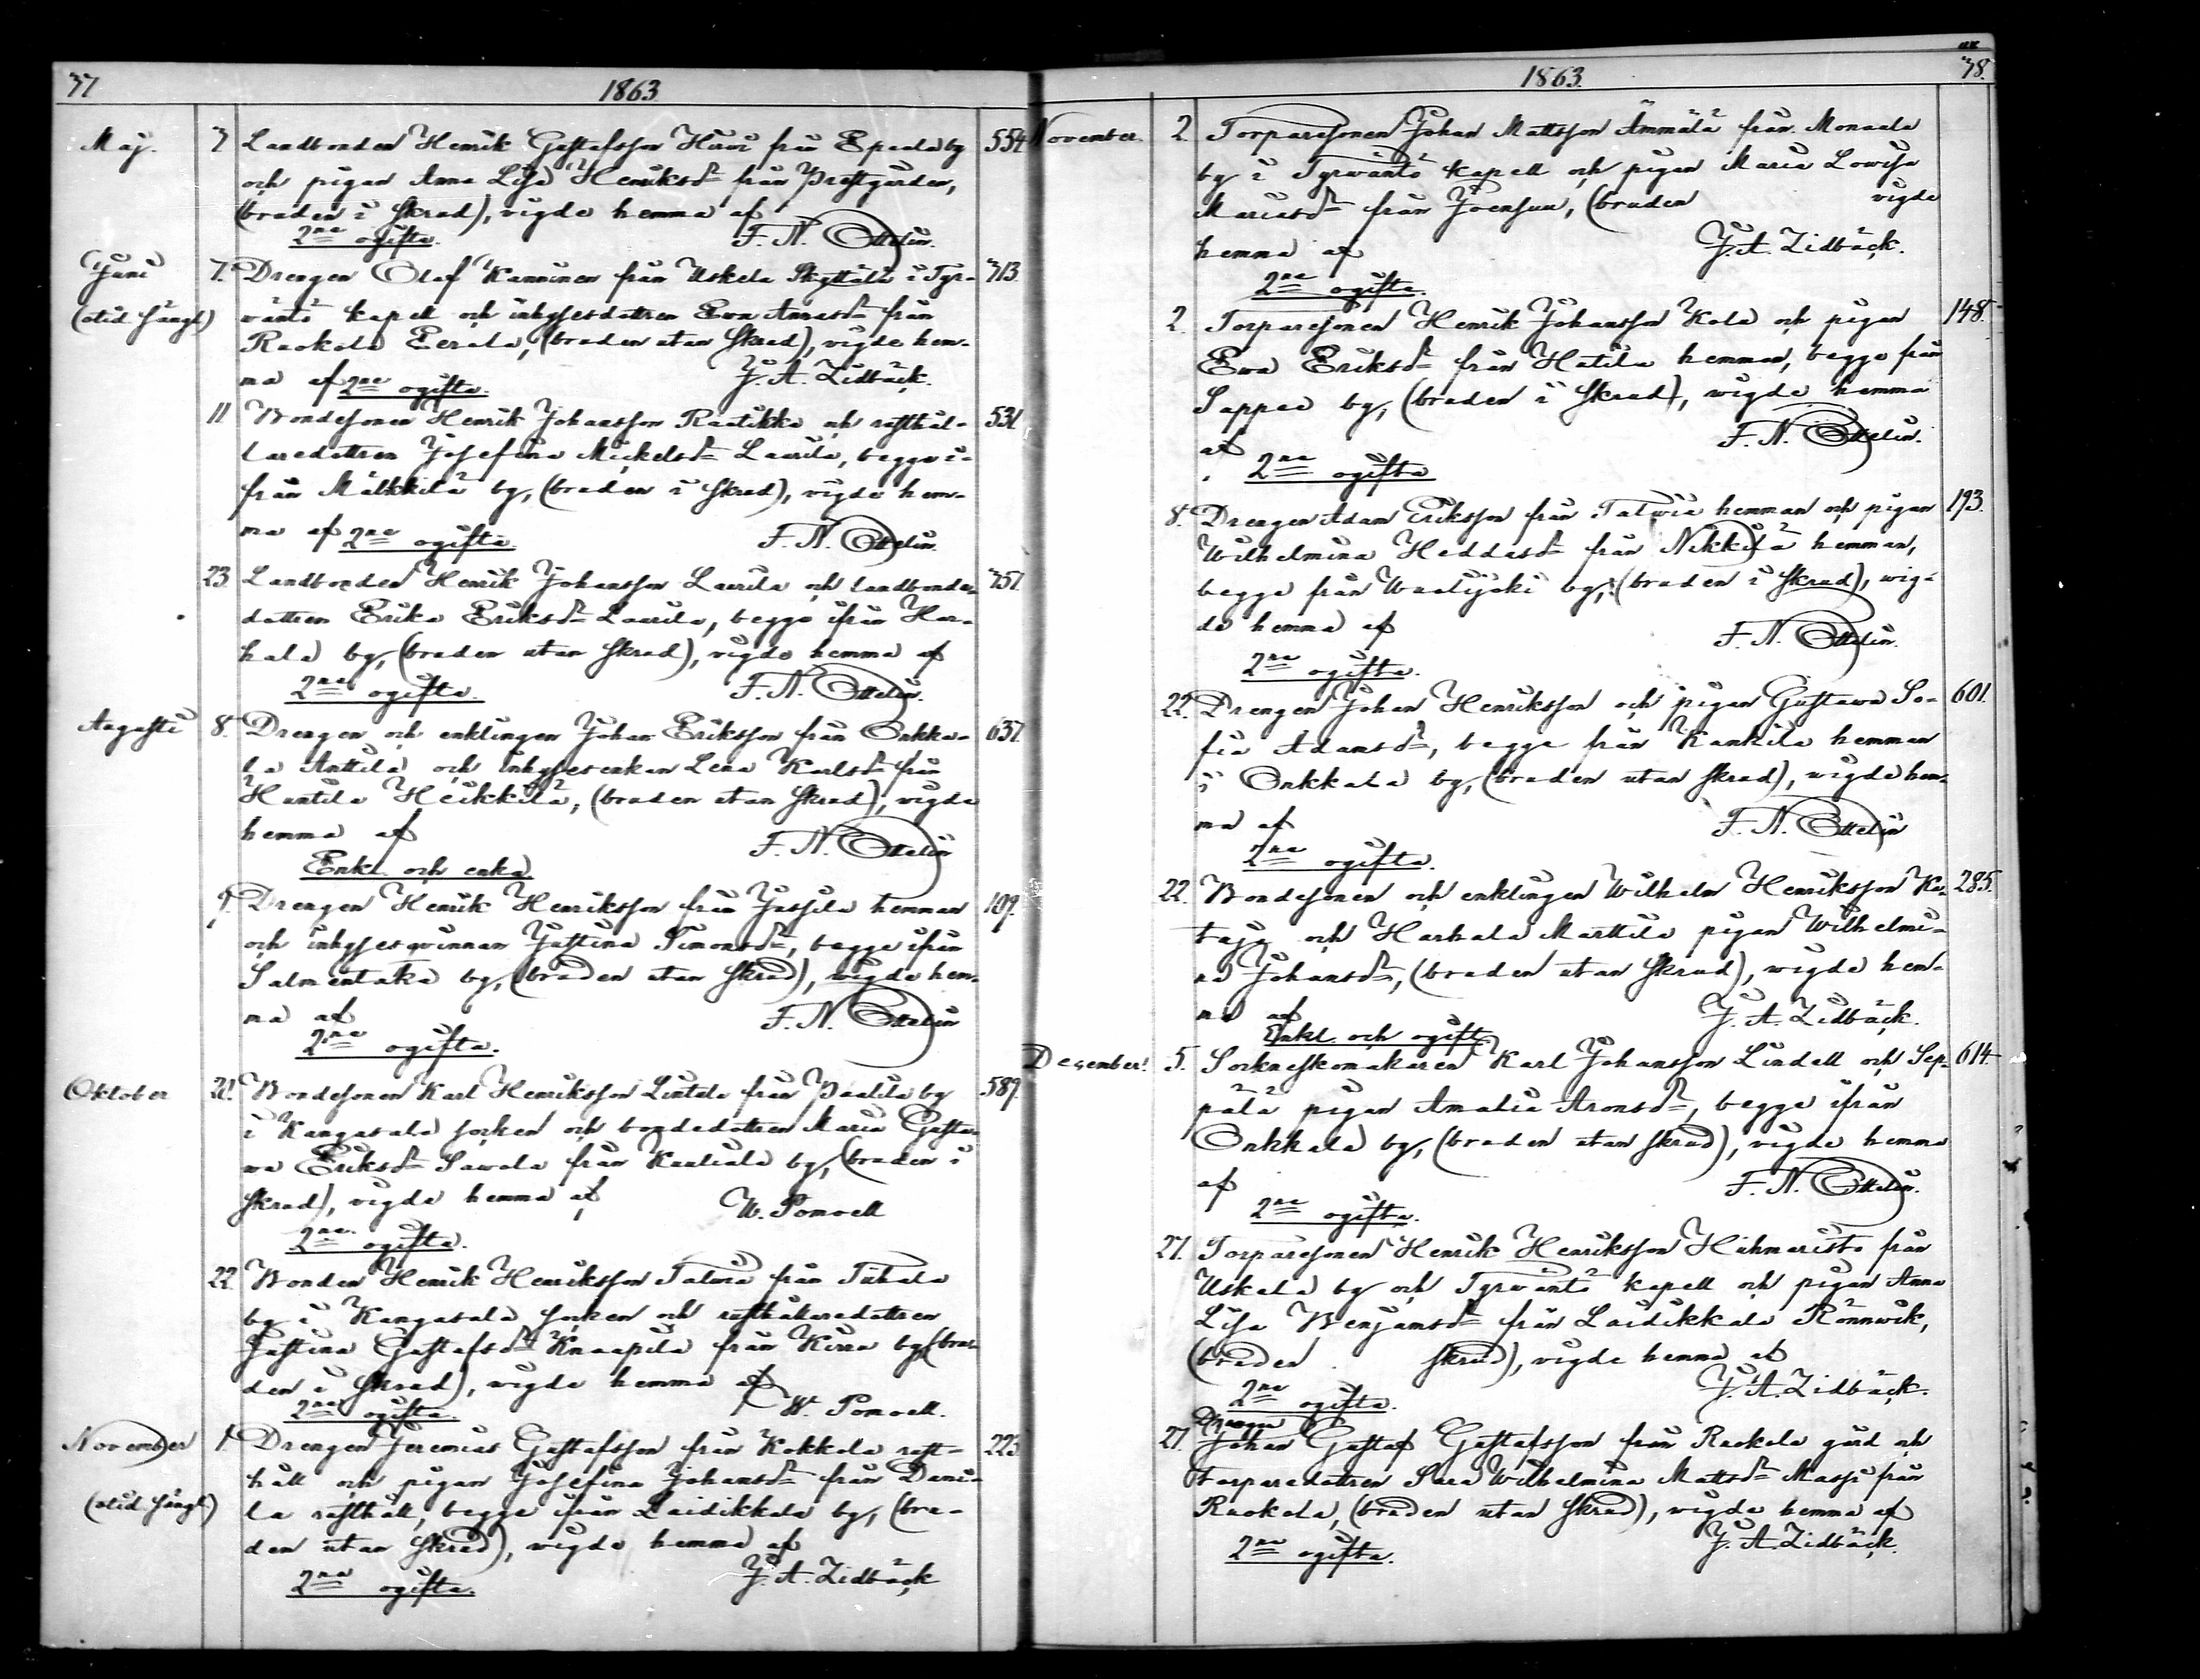 37
1863.
Maj. 3 Landbonden Henrik Gustafsson Hirvi från Epaala by 554
och pigan Anna Lisa Henriksdr från Prestgården,
(bruden i skrud), vigde hemma af
2ne ogifta. F. N. Ottelin.
Juni 7. Drengen Olof Kanninen från Uskela Skyttälä i Tyr- 713.
(otid. sängl.) wäntö kapell och inhysesdottren Ewa Annasdr från
Raokola Eerola, (bruden utan skrud), vigde hem-
ma af 2ne ogifta. J. A. Zidbäck.
11 Bondesonen Henrik Johansson Raatikka och rusthål- 531.
laredottren Josefina Mickelsdr Laurila, begge i-
från Mälkkilä by, (bruden i skrud), vigde hem-
ma af 2ne ogifta. F. N. Ottelin.
23. Landbonden Henrik Johansson Laurila och landbonde- 757.
dottren Erika Eriksdr Laurila, begge ifrån Har-
hala by, (bruden utan skrud), vigde hemma af
2ne ogifta. F. N. Ottelin.
Augusti 8. Drengen och enklingen Johan Eriksson från Onkka- 637.
la Anttila och inhysesenkan Lena Karlsdr från
Huntila Heikkilä, (bruden utan skrud), vigde
hemma af F. N. Ottelin
Enkl. och enka.
9. Drengen Henrik Henriksson från Jussila hemman 109.
och inhysesqvinnan Justina Simonsdr, begge ifrån
Salmentaka by, (bruden utan skrud), wigde hem-
ma af F. N. Ottelin
2ne ogifta.
Oktober 22. Bondesonen Karl Henriksson Lintula från Paalila by 589.
i Kangasala socken och bondedottren Maria Gusta-
wa Eriksdr Sawola från Kuuliala by, (bruden i
skrud), vigde hemma af W. Pomoell
2ne ogifta.
22. Bonden Henrik Henriksson Talwia från Tiihala
by i Kangasala socken och rusthållaredottren
Justina Gustafsdr Knaapila från Kirra by, (bru-
den i skrud), wigde hemma af
2ne ogifta. W. Pomoell.
November 1. Drengen Jeremias Gustafsson från Kokkola rust- 223.
håll och pigan Josefina Johansdr från Dani-
(otid. sängl.) la rusthåll, begge ifrån Laidikkala by, (bru-
den utan skrud), wigde hemma af
2ne ogifta. J. A. Zidbäck
38.
1863.
November. 2. Torparesonen Johan Mattsson Ämmälä från Monaala
by i Tyrwäntö kapell och pigan Maria Lowisa
Mariasdr från Joensuu, (bruden vigde
hemma af J. A. Zidbäck.
2ne ogifta.
2. Torparesonen Henrik Johansson Kola och pigan 148.
Ewa Eriksdr från Hatila hemman, begge från
Sappee by, (bruden i skrud), wigde hemma
af F. N. Ottelin.
2ne ogifta
8. Drengen Adam Eriksson från Talwia hemman och pigan 193.
Wilhelmina Heddasdr från Nikkilä hemman,
begge från Waalijoki by, (bruden i skrud), wig-
de hemma af F. N. Ottelin.
2ne ogifta.
22. Drengen Johan Henriksson och pigan Gustawa So- 601.
fia Adamsdr, begge från Kankila hemman
i Onkkala by, (bruden utan skrud), wigde hem-
ma af F. N. Ottelin
2ne ogifta.
22. Bondesonen och enklingen Wilhelm Henriksson Ka- 285.
taja och Harhala Marttila pigan Wilhelmi-
na Johansdr, (bruden utan skrud), wigde hem-
ma af J. A. Zidbäck.
Enkl. och ogift.
December. 5. Sockneskomakaren Karl Johansson Lindell och Sep- 614.
pälä pigan Amalia Aronsdr, begge ifrån
Onkkala by, (bruden utan skrud), vigde hemma
af F. N. Ottelin.
2ne ogifta.
27. Torparesonen Henrik Henriksson Hihnaristo från
Uskela by och Tyrwäntö kapell och pigan Anna
Lisa Benjamsdr från Laidikkala Rönnwik,
(bruden skrud), vigde hemma af
2ne ogifta. J. A. Zidbäck.
Drengen
27. Johan Gustaf Gustafsson från Raokola gård och
torparedottren Sara Wilhelmina Mattsdr Massi från
Raokola, (bruden utan skrud), wigde hemma af
2ne ogifta. J. A. Zidbäck.